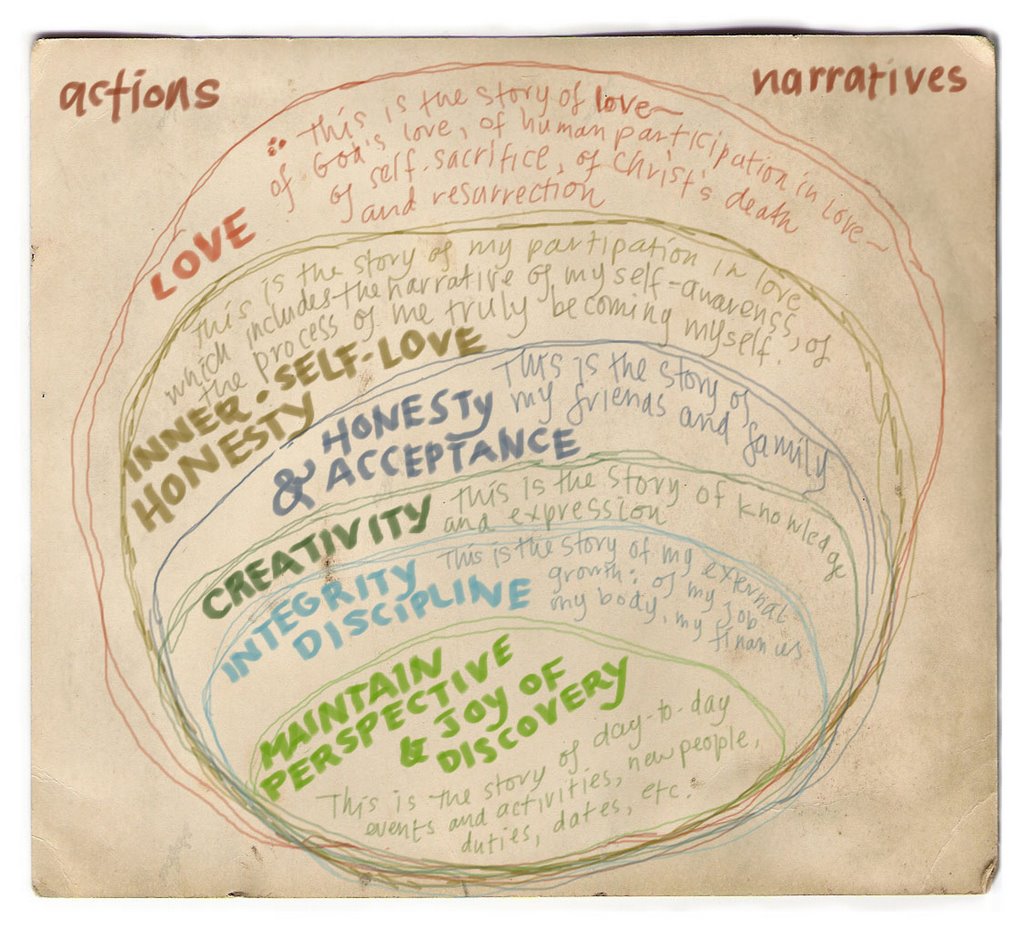 actions
narratives
This is the story of love~
of God's love, of human participation in love~
of self-sacrifice, of Christ's death
and resurrection
LOVE
This is the story of my partipation in love
which includes the narrative of my self-awarenss, of
the process of me truly becoming myself.
INNER • SELF-LOVE
HONESTY
This is the story of
my friends and family
HONESTY
& ACCEPTANCE
This is the story of knowledge
and expression
CREATIVITY
This is the story of my external
growth: of my job
my body, my finances
INTEGRITY
DISCIPLINE
MAINTAIN
PERSPECTIVE
& JOY OF
DISCOVERY
This is the story of day-to-day
events and activities, new people,
duties, dates, etc.